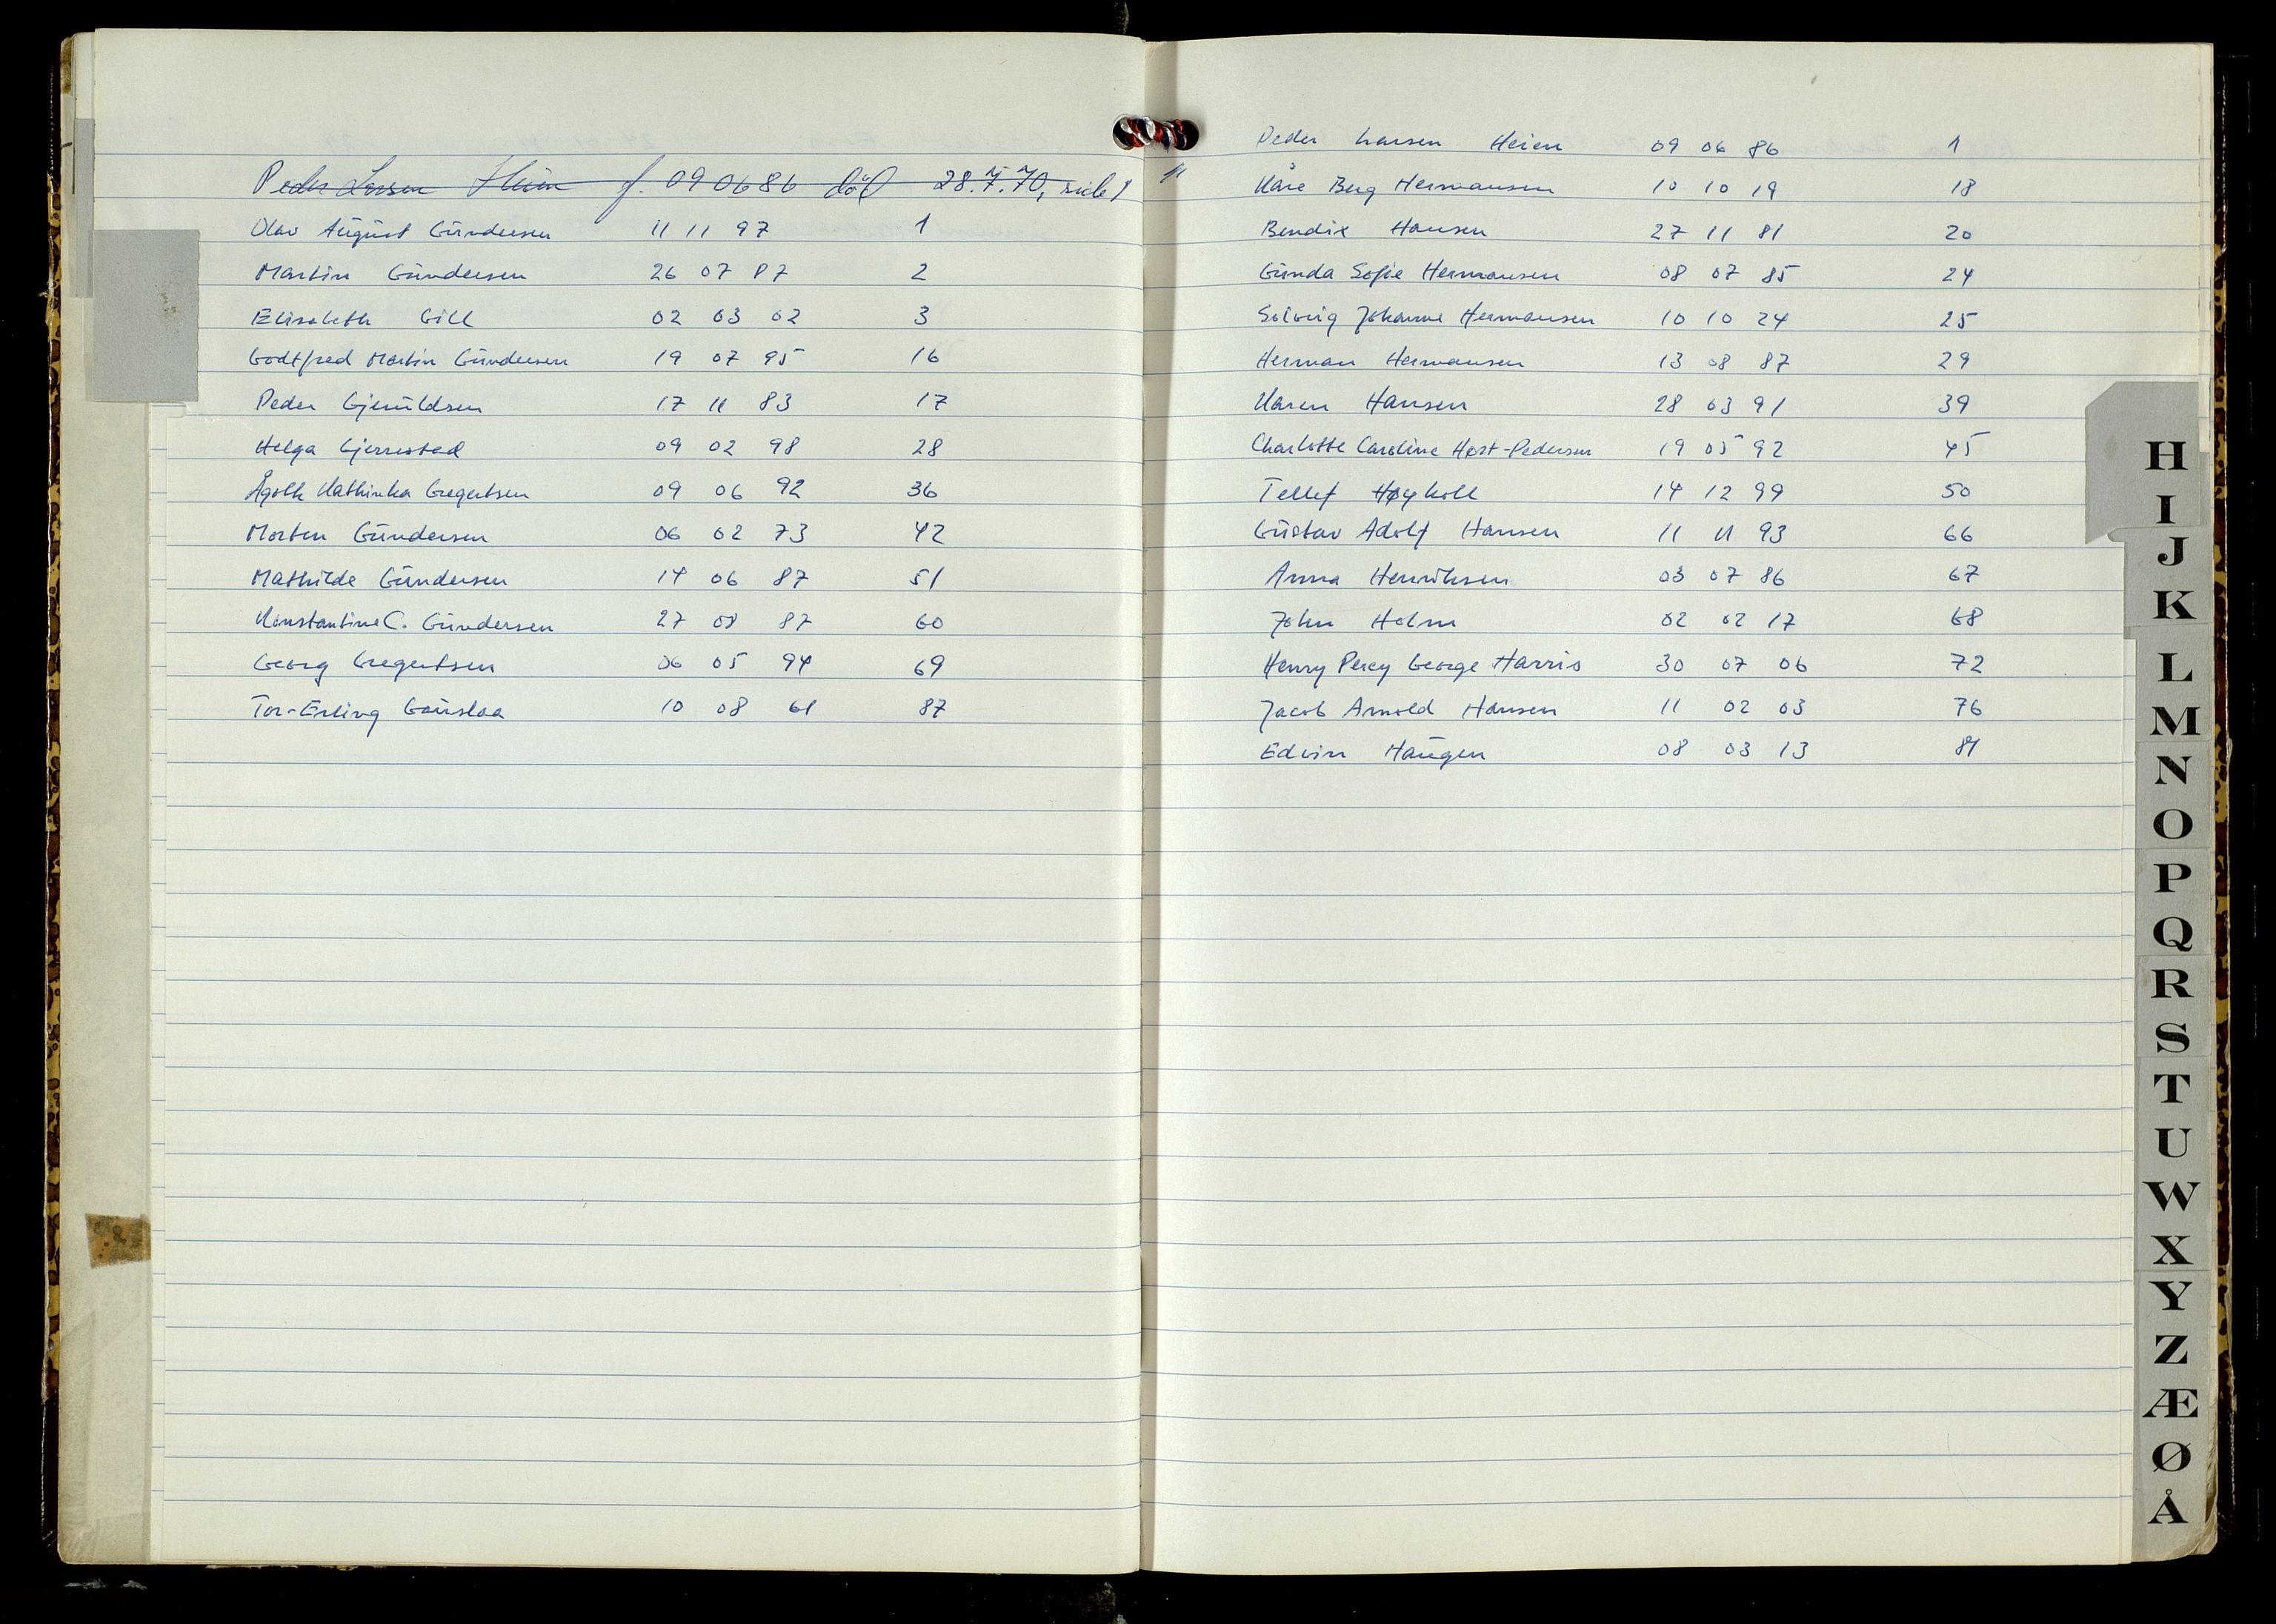 Peder Larsen Heien f. 09 06 86 död 28.7.70, side 1
Olav August Gundersen 11 11 97 1
Martin Gundersen 26 07 87 2
Elisabeth Gill 02 03 02 3
Godtfred Martin Gundersen 19 07 95 16
Peder Gjeruldsen 17 11 83 17
Helga Gjerrestad 09 02 98 28
Ågoth Kathinka Gregertsen 09 06 92 36
Morten Gundersen 06 02 73 42
Mathilde Gundersen 14 06 87 51
Konstantine C. Gundersen 27 08 87 60
Georg Gregertsen 06 05 94 69
Tor-Erling Gauslaa 10 08 61 87
Peder Larsen Heien 09 06 86 1
Kåre Berg Hermansen 10 10 19 18
Bendix Hansen 27 11 81 20
Gunda Sofie Hermansen 08 07 85 24
Solveig Johanne Hermansen 10 10 24 25
Herman Hermansen 13 08 87 29
Karen Hansen 28 03 91 39
Charlotte Caroline Høst-Pedersen 19 05 92 45
Tellef Høykoll 14 12 99 50
Gustav Adolf Hansen 11 11 93 66
Anna Henriksen 03 07 86 67
John Holm 02 02 17 68
Henry Percy George Harris 30 07 06 72
Jacob Arnold Hansen 11 02 03 76
Edvin Haugen 08 03 13 81
H
I
J
K
L
M
N
O
P
Q
R
S
T
U
W
X
Y
Z
Æ
Ø
Å